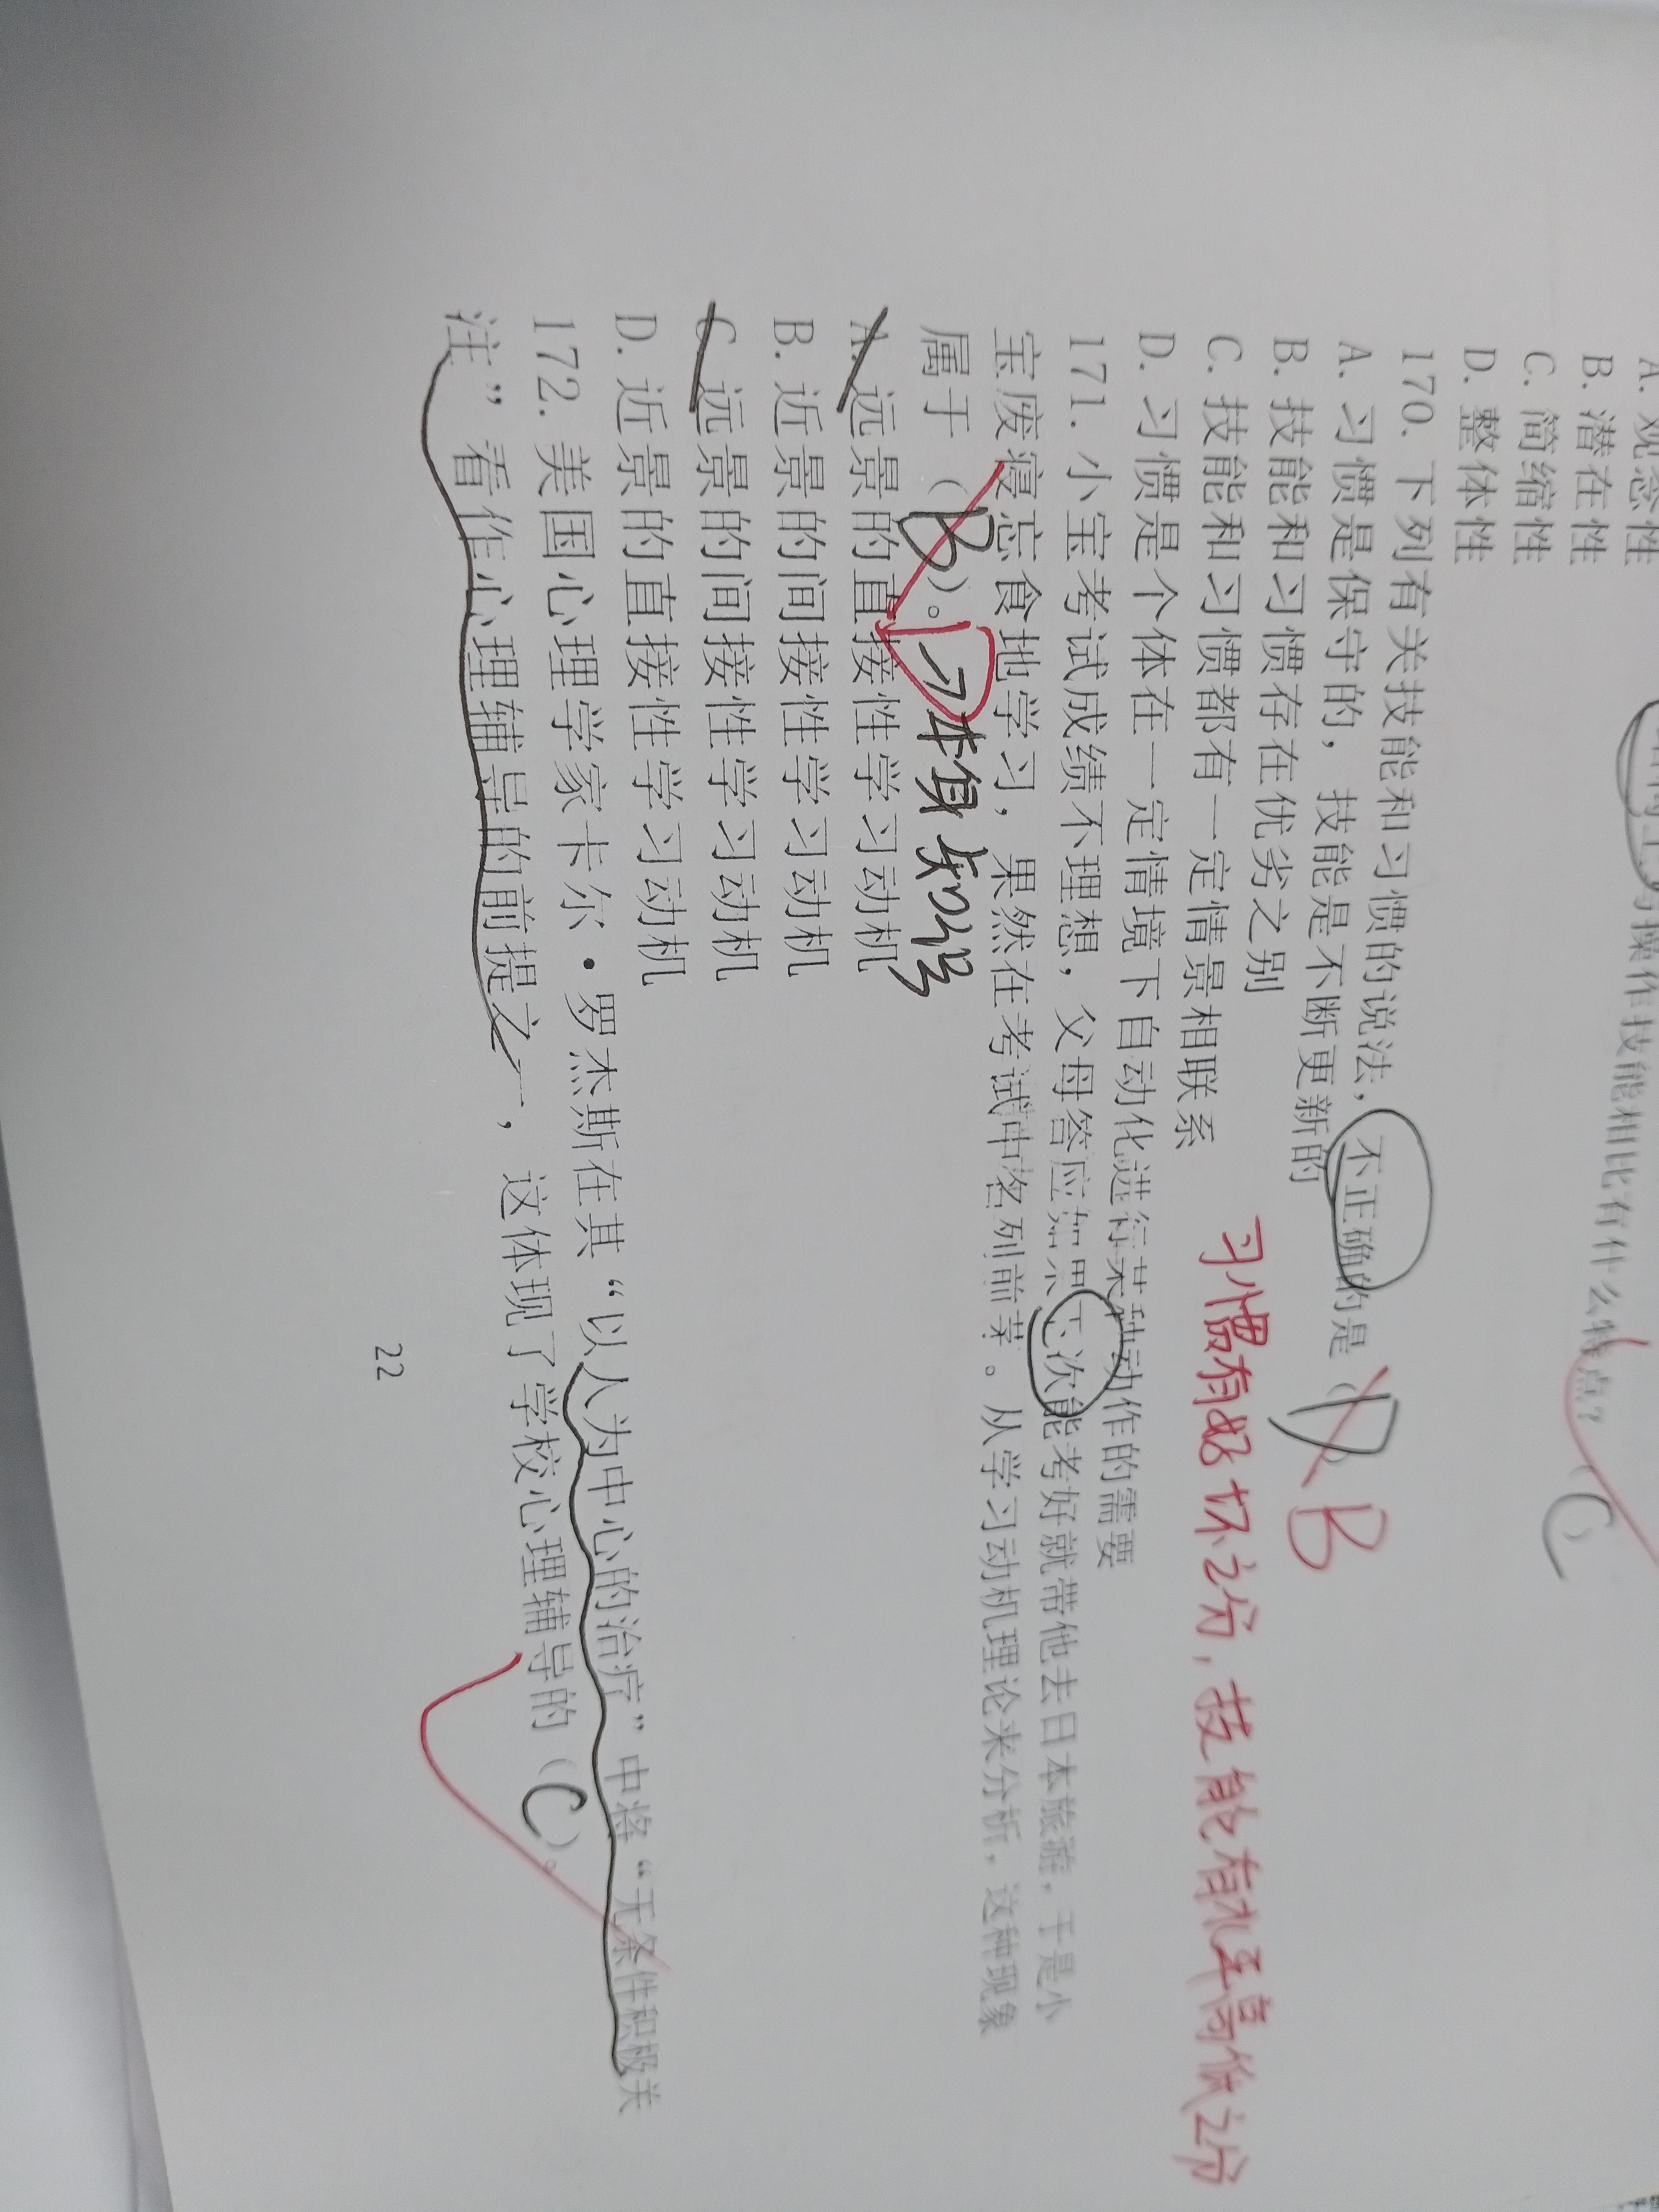 A. 观念性
B. 潜在性
C. 简缩性
D. 整体性
操作技能相比有什么特点？（C）
170. 下列有关技能和习惯的说法，不正确的是（D） B
A. 习惯是保守的，技能是不断更新的
B. 技能和习惯存在优劣之别
C. 技能和习惯都有一定情景相联系
习惯有好坏之分，技能有水平高低之分
D. 习惯是个体在一定情境下自动化进行某种动作的需要
171. 小宝考试成绩不理想，父母答应如果下次能考好就带他去日本旅游，于是小
宝废寝忘食地学习，果然在考试中名列前茅。从学习动机理论来分析，这种现象
属于（B）。
本身知识
A. 远景的直接性学习动机
B. 近景的间接性学习动机
C. 远景的间接性学习动机
D. 近景的直接性学习动机
172. 美国心理学家卡尔·罗杰斯在其“以人为中心的治疗”中将“无条件积极关
注”看作心理辅导的前提之一，这体现了学校心理辅导的（C）。
22